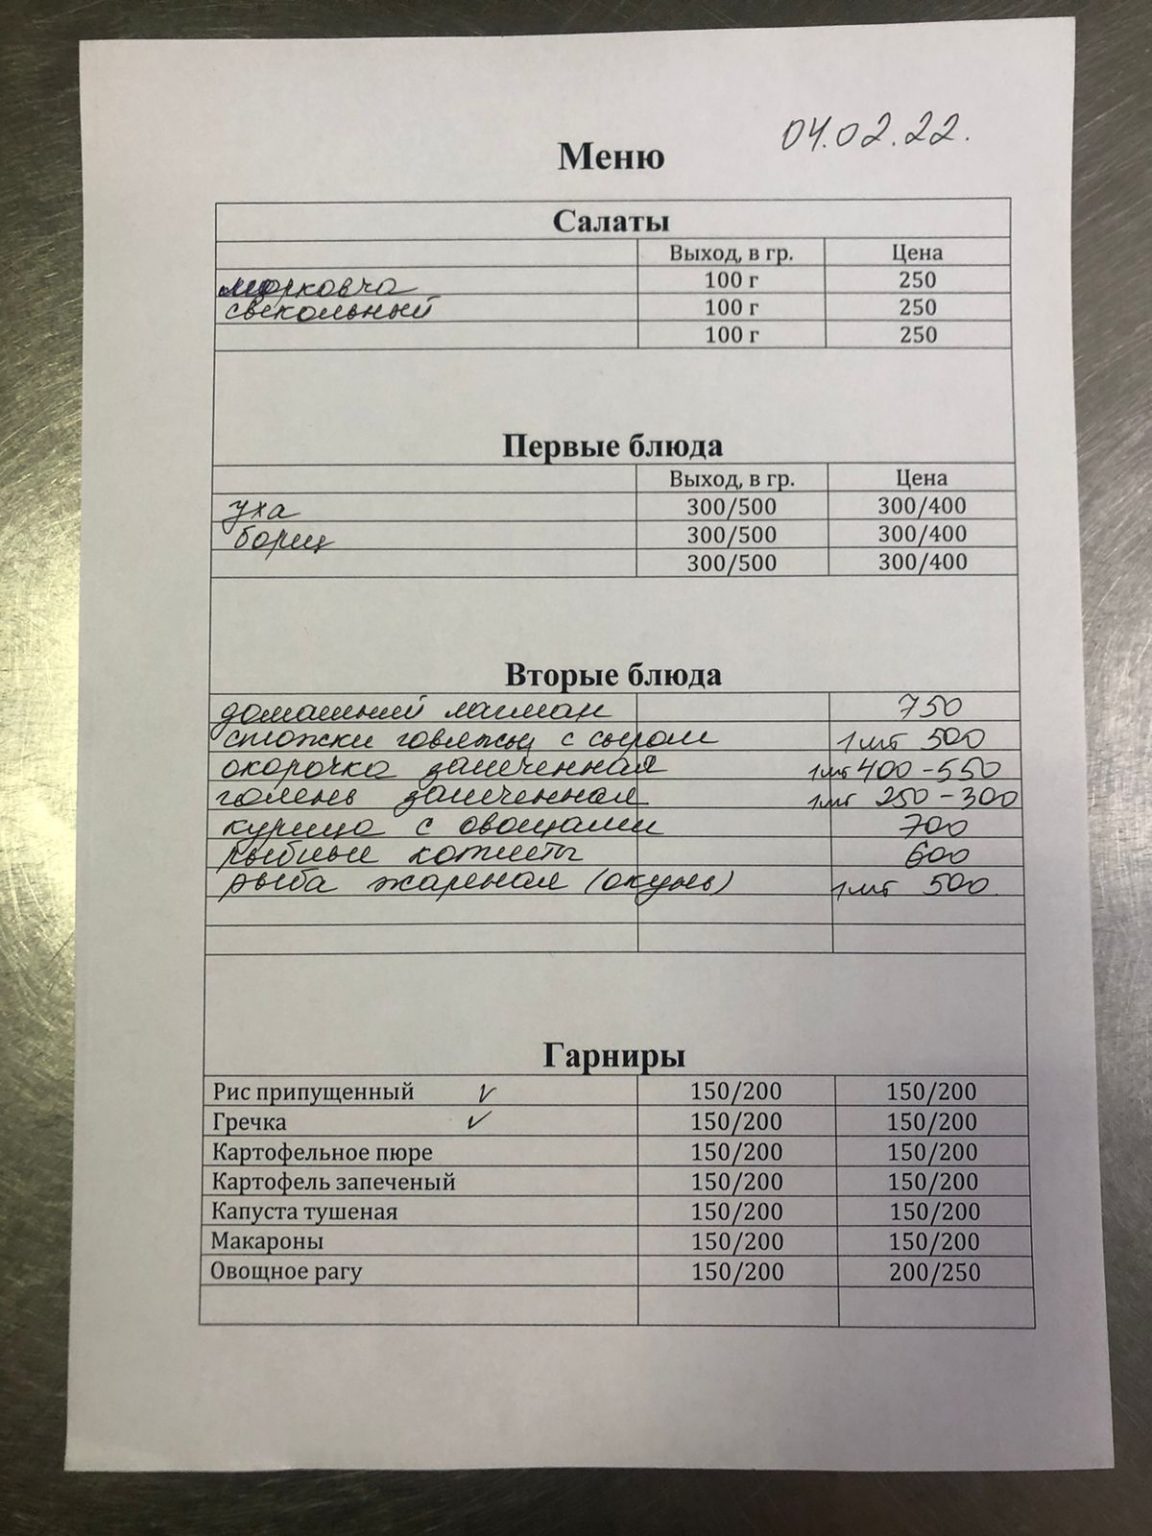 04.02.22.
Меню
Салаты
Выход, в гр. Цена
морковча 100 г 250
свекольный 100 г 250
100 г 250
Первые блюда
Выход, в гр. Цена
уха 300/500 300/400
борщ 300/500 300/400
300/500 300/400
Вторые блюда
домашний лагман 750
стожки говяжьи с сыром 1шт 500
окорочка запеченная 1шт 400-550
голень запеченная 1шт 250-300
курица с овощами 700
рыбные котлеты 600
рыба жареная (окунь) 1шт 500
Гарниры
Рис припущенный ✓ 150/200 150/200
Гречка ✓ 150/200 150/200
Картофельное пюре 150/200 150/200
Картофель запеченый 150/200 150/200
Капуста тушеная 150/200 150/200
Макароны 150/200 150/200
Овощное рагу 150/200 200/250